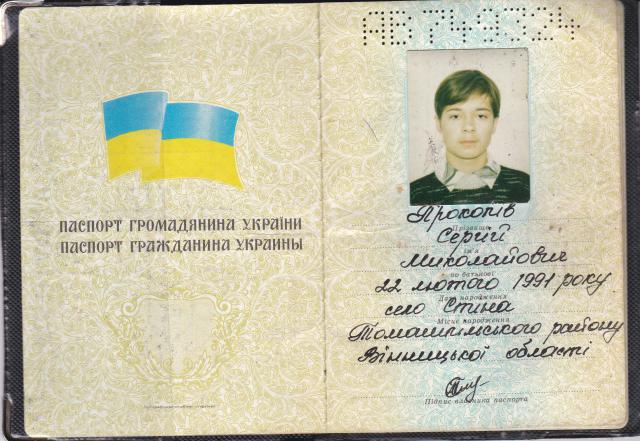 ПАСПОРТ ГРОМАДЯНИНА УКРАЇНИ
ПАСПОРТ ГРАЖДАНИНА УКРАИНЫ
АВ 749324
Прокопів
Прізвище
Сергій
ім'я
Миколайович
по батькові
22 лютого 1991 року
Дата народження
село Стіна
Місце народження
Томашпільського району
Вінницької області
Підпис власника паспорта